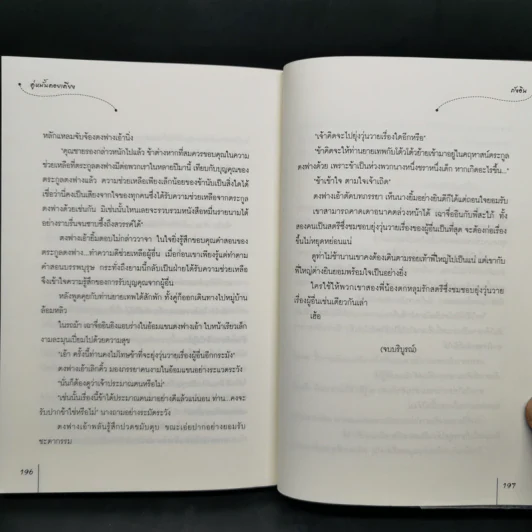 คู่หมั้นตระกูลตง
หลักแหลมจับจ้องตงฟางเอ้านิ่ง
"คุณชายรองกล่าวหนักไปแล้ว ข้าต่างหากที่สมควรขอบคุณในความ
ช่วยเหลือที่ตระกูลตงฟางมีต่อพวกเราในหลายปีมานี้ เทียบกับบุญคุณของ
ตระกูลตงฟางแล้ว ความช่วยเหลือเพียงเล็กน้อยของข้านับเป็นสิ่งใดได้
เชื่อว่านี่คงเป็นเสียงจากใจของทุกคนซึ่งได้รับความช่วยเหลือจากตระกูล
ตงฟางด้วยเช่นกัน มิเช่นนั้นไหนเลยจะรวบรวมหนังสือหมื่นรายนามได้
อย่างราบรื่นจนชาบซึ้งถึงสวรรค์ได้"
ตงฟางเอ้ายิ้มตอบไม่กล่าววาจา ในใจยิ่งรู้สึกขอบคุณคำสอนของ
ตระกูลตงฟาง...ทำความดีช่วยเหลือผู้อื่น เมื่อก่อนเขาเพียงรู้แต่ทำตาม
คำสอนบรรพบุรุษ กระทั่งถึงยามนี้กลับเป็นฝ่ายได้รับความช่วยเหลือ
จึงเข้าใจความรู้สึกของการรับบุญคุณจากผู้อื่น
หลังพูดคุยกับท่านยายเทพได้สักพัก ทั้งคู่ก็ออกเดินทางไปหมู่บ้าน
ล้อมหลิว
ในรถม้า เฉาจื่ออินอิงแอบร่างในอ้อมแขนตงฟางเอ้า ใบหน้าเรียวเล็ก
งามละมุนเปี่ยมไปด้วยความสุข
"เอ้า ครั้งนี้ท่านคงไม่โทษข้าที่จะยุ่งวุ่นวายเรื่องผู้อื่นอีกกระมัง"
ตงฟางเอ้าเลิกคิ้ว มองภรรยาคนงามในอ้อมแขนอย่างระแวดระวัง
"นั่นก็ต้องดูว่าเจ้าประมาณตนหรือไม่"
"เช่นนั้นเรื่องนี้ข้าได้ประมาณตนมาอย่างดีแล้วแน่นอน ท่าน...คงจะ
รับปากข้าใช่หรือไม่" นางถามอย่างระมัดระวัง
ตงฟางเอ้าพลันรู้สึกปวดขมับตุบ ขณะเอ่ยปากอย่างยอมรับ
ชะตากรรม
196
กัวซิน
"เจ้าคิดจะไปยุ่งวุ่นวายเรื่องใดอีกหรือ"
"ข้าคิดจะให้ท่านยายเทพกับไต้ไต้ย้ายเข้ามาอยู่ในคฤหาสน์ตระกูล
ตงฟางด้วย เพราะข้าเป็นห่วงพวกนางหนึ่งชราหนึ่งเด็ก หากเกิดอะไรขึ้น..."
"ข้าเข้าใจ ตามใจเจ้าเถิด"
ตงฟางเอ้าตัดบทภรรยา เห็นนางยิ้มอย่างยินดีก็ได้แต่ถอนใจยอมรับ
เขาสามารถคาดเดาอนาคตล่วงหน้าได้ เฉาจื่ออินกับพี่สะใภ้ ทั้ง
สองคนเป็นสตรีชมชอบยุ่งวุ่นวายเรื่องของผู้อื่นเป็นที่สุด จะต้องก่อเรื่อง
ขึ้นไม่หยุดหย่อนแน่
ดูท่าไม่ช้านานเขาคงต้องเดินตามรอยเท้าพี่ใหญ่ไปเป็นแน่ แต่เขากับ
พี่ใหญ่ต่างยินยอมพร้อมใจเป็นอย่างยิ่ง
ใครใช้ให้พวกเขาสองพี่น้องตกหลุมรักสตรีซึ่งชมชอบยุ่งวุ่นวาย
เรื่องผู้อื่นเช่นเดียวกันเล่า
เฮ้อ
(จบบริบูรณ์)
197